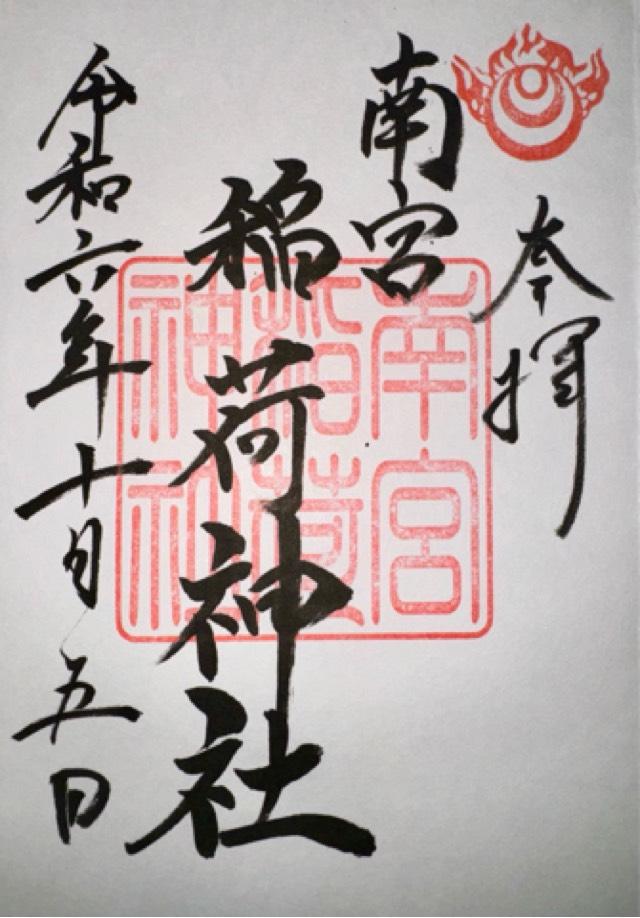 奉拝
南宮
稲荷神社
南宮
稲荷
神社
令和六年十月五日